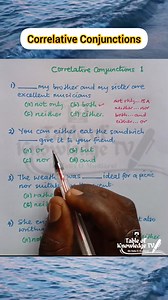 Correlative Conjunctions
Correlative Conjunctions 1
1) ______ my brother and my sister are
excellent musicians
(a) not only (b) both
(c) neither (d) either
not only...
neither... nor
both... and
either... or
2) You can either eat the sandwich
______ give it to your friend.
(a) or (b) but
(c) nor (d) and
3) The weather was ______ ideal for a picnic
nor suitable
(a)
(c) n
4) She en
Table of
Knowledge TV